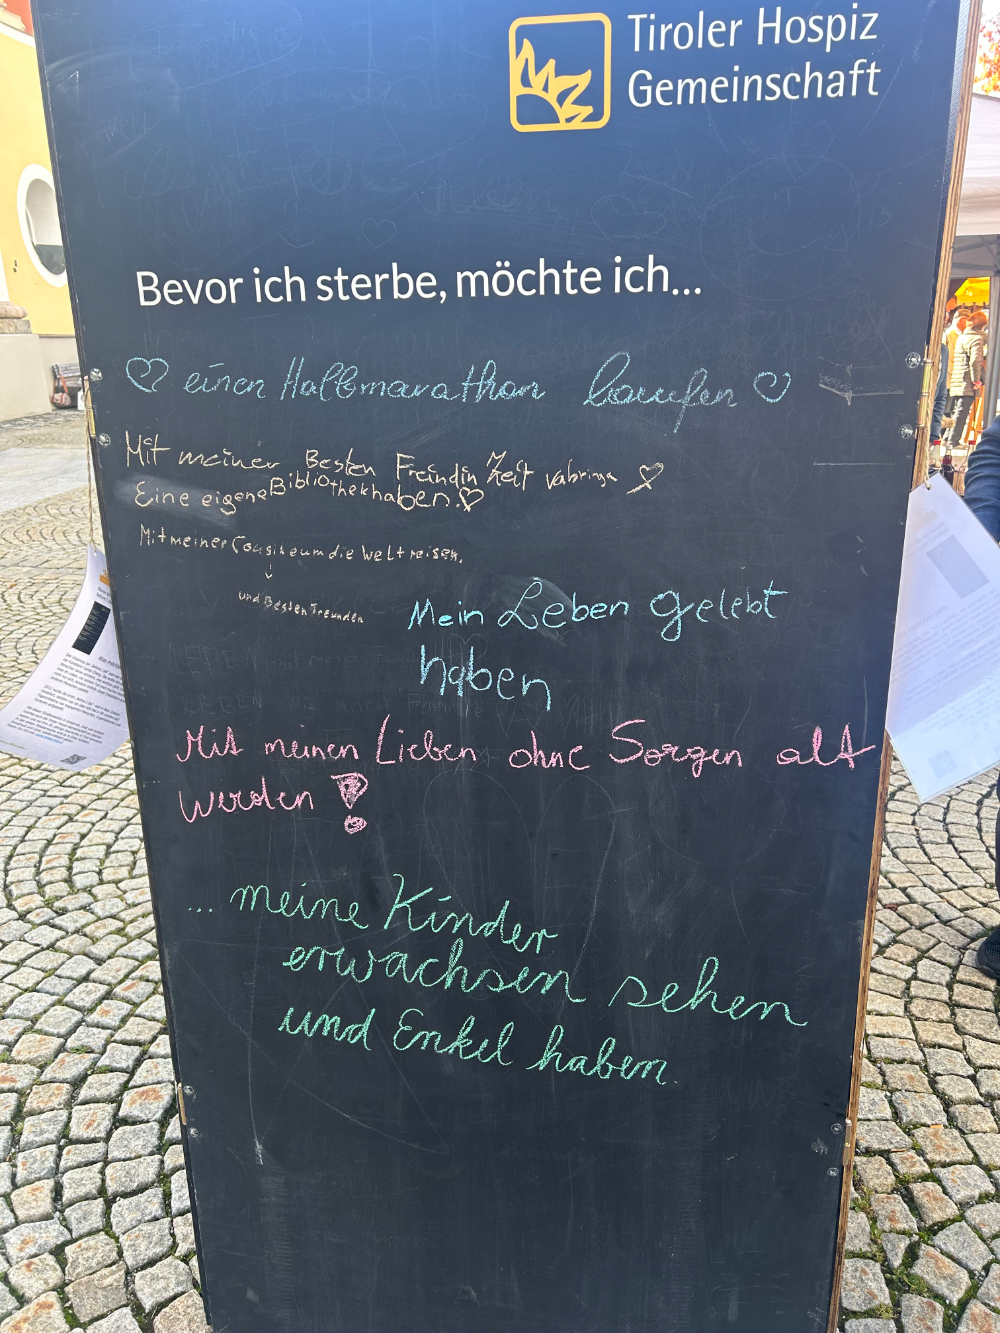 Tiroler Hospiz
Gemeinschaft
Bevor ich sterbe, möchte ich...
♡ einen Halbmarathon laufen ♡
Mit meiner Besten Freindin Zeit vabringn ♡
Eine eigene Bibliothek haben.♡
Mit meiner Cousine um die Welt reisen.
↓
und Besten Freunden
Mein Leben gelebt
haben
Mit meinen Lieben ohne Sorgen alt
werden !
... meine Kinder
erwachsen sehen
und Enkel haben.